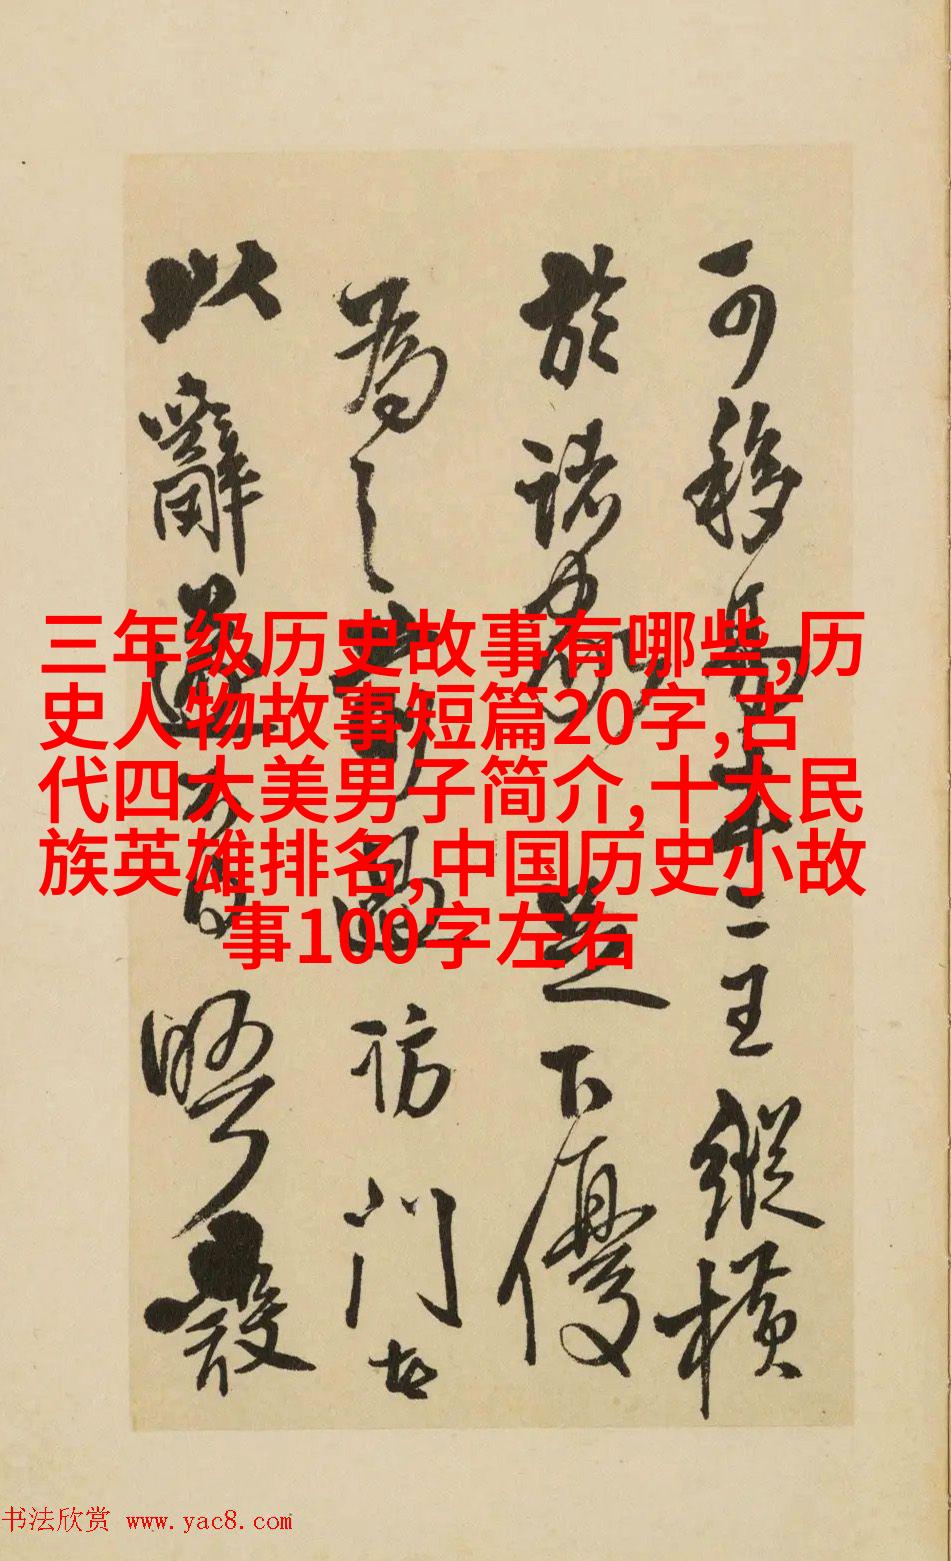 三年级历史故事有哪些,历
史人物故事短篇20字,古
代四大美男子简介,十大民
族英雄排名,中国历史小故
事100字左右
可移二王縱橫
於諸家下優
為之訪門
以辭設
书法欣赏 www.yac8.com